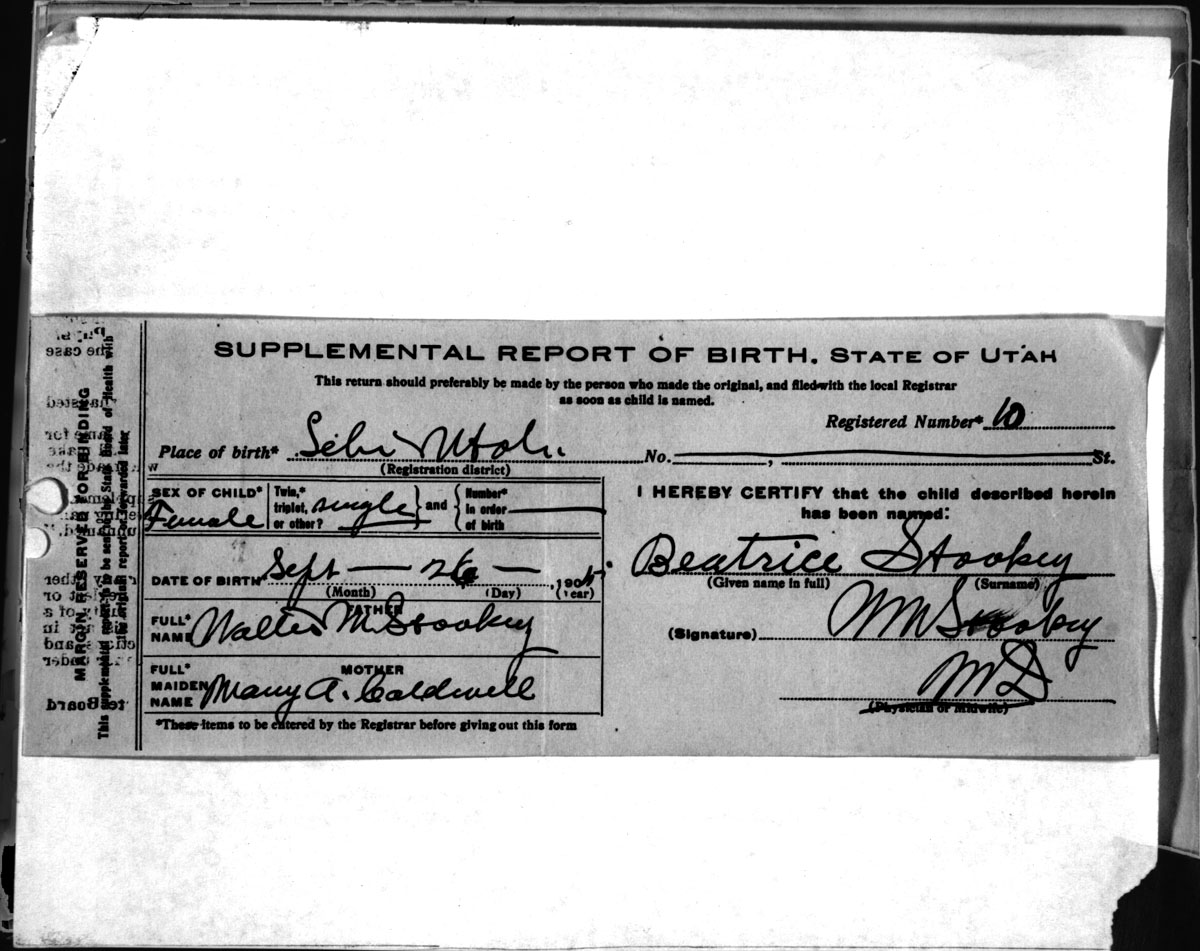 SUPPLEMENTAL REPORT OF BIRTH. STATE OF UTAH
This return should preferably be made by the person who made the original, and filed with the local Registrar
as soon as child is named.
Registered Number* 10
Place of birth* Lehi Utah. No. , St.
(Registration district)
SEX OF CHILD* Female
Twin, triplet, or other? single } and { Number* in order of birth
DATE OF BIRTH Sept — 26 — , 1905
(Month) (Day) (Year)
FATHER
FULL* NAME Walter M. Stookey
MOTHER
FULL* MAIDEN NAME Mary A. Caldwell
*These items to be entered by the Registrar before giving out this form
I HEREBY CERTIFY that the child described herein
has been named:
Beatrice Stookey
(Given name in full) (Surname)
(Signature) WM Stookey
MD
(Physician or Midwife)
MARGIN RESERVED FOR BINDING
This supplemental report to be sent to the State Board of Health with
the original report or forwarded later